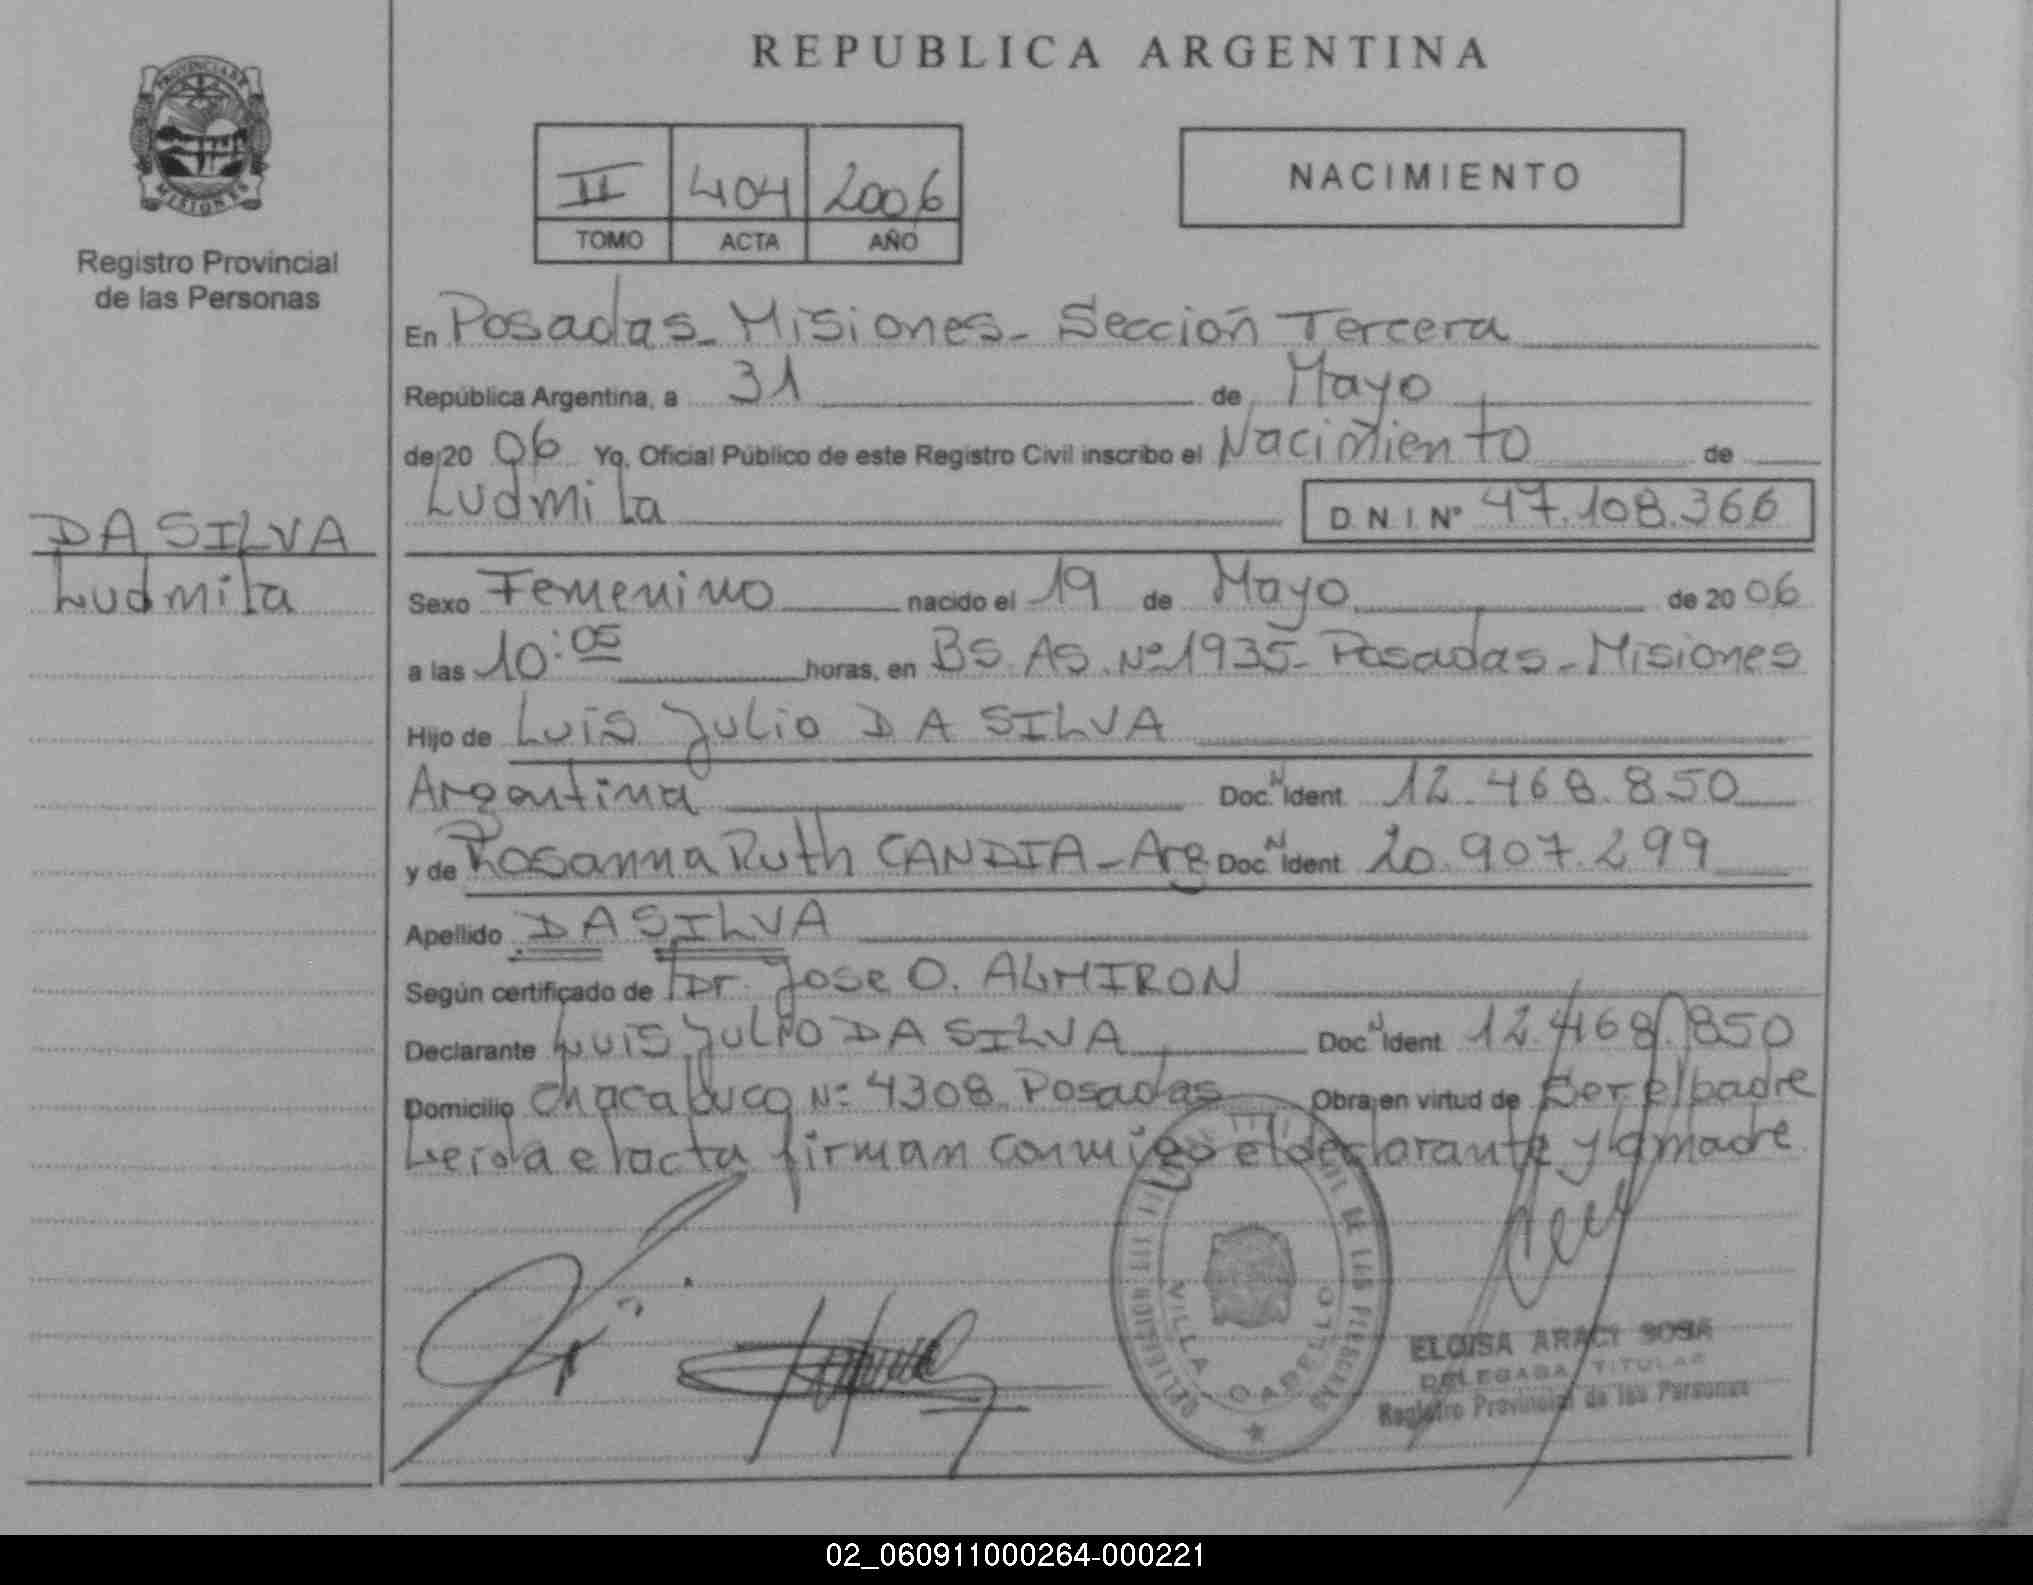 REPUBLICA ARGENTINA
PROVINCIA DE
MISIONES
Registro Provincial
de las Personas
II 404 2006
TOMO ACTA AÑO
NACIMIENTO
En Posadas - Misiones - Sección Tercera
República Argentina, a 31 de Mayo
de 20 06 Yo, Oficial Público de este Registro Civil inscribo el Nacimiento de
Ludmila D.N.I. Nº 47.108.366
DA SILVA
Ludmila
Sexo Femenino nacido el 19 de Mayo de 20 06
a las 10:05 horas, en BS. AS. Nº 1935 - Posadas - Misiones
Hijo de Luis Julio DA SILVA
Argentina Doc. N Ident. 12.468.850
y de Rosanna Ruth CANDIA - Arg Doc. N Ident. 20.907.299
Apellido DA SILVA
Según certificado de Dr. Jose O. ALMIRON
Declarante Luis Julio DA SILVA Doc. N Ident. 12.468.850
Domicilio Chacabuco Nº 4308 Posadas Obra en virtud de Ser el padre
Leida el acta firman conmigo el declarante y la madre.
VILLA CABELLO
ELOISA ARACI SOSA
DELEGADA TITULAR
Registro Provincial de las Personas
02_060911000264-000221